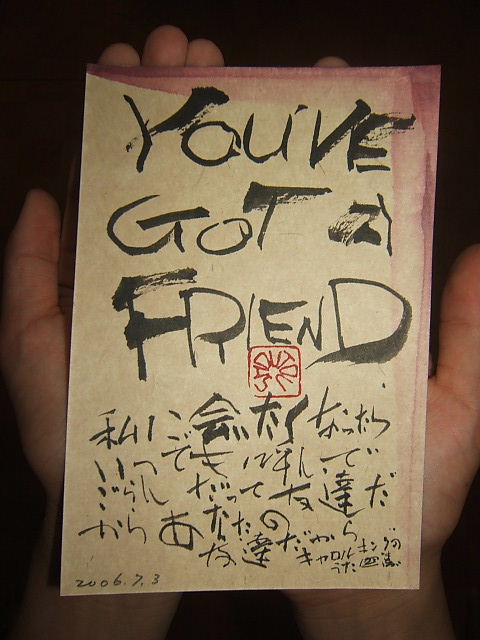 YOU'VE
GOT A
FRIEND
私に会いたくなったら
いつでも呼んで
ごらんだって友達だ
からあなたの
友達だから
キャロルキングの
うた
2006.7.3